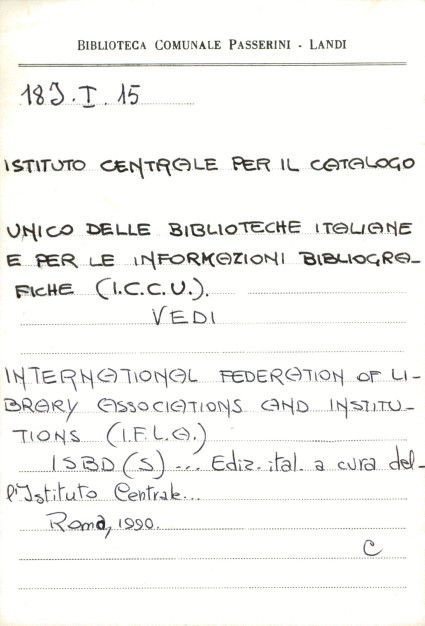 BIBLIOTECA COMUNALE PASSERINI - LANDI
18J.I.15
ISTITUTO CENTRALE PER IL CATALOGO
UNICO DELLE BIBLIOTECHE ITALIANE
E PER LE INFORMAZIONI BIBLIOGRA-
FICHE (I.C.C.U.).
VEDI
INTERNATIONAL FEDERATION OF LI-
BRARY ASSOCIATIONS AND INSTITU-
TIONS (I.F.L.A.)
ISBD(S)... Ediz. ital. a cura del-
l'Istituto Centrale...
Roma, 1990.
C